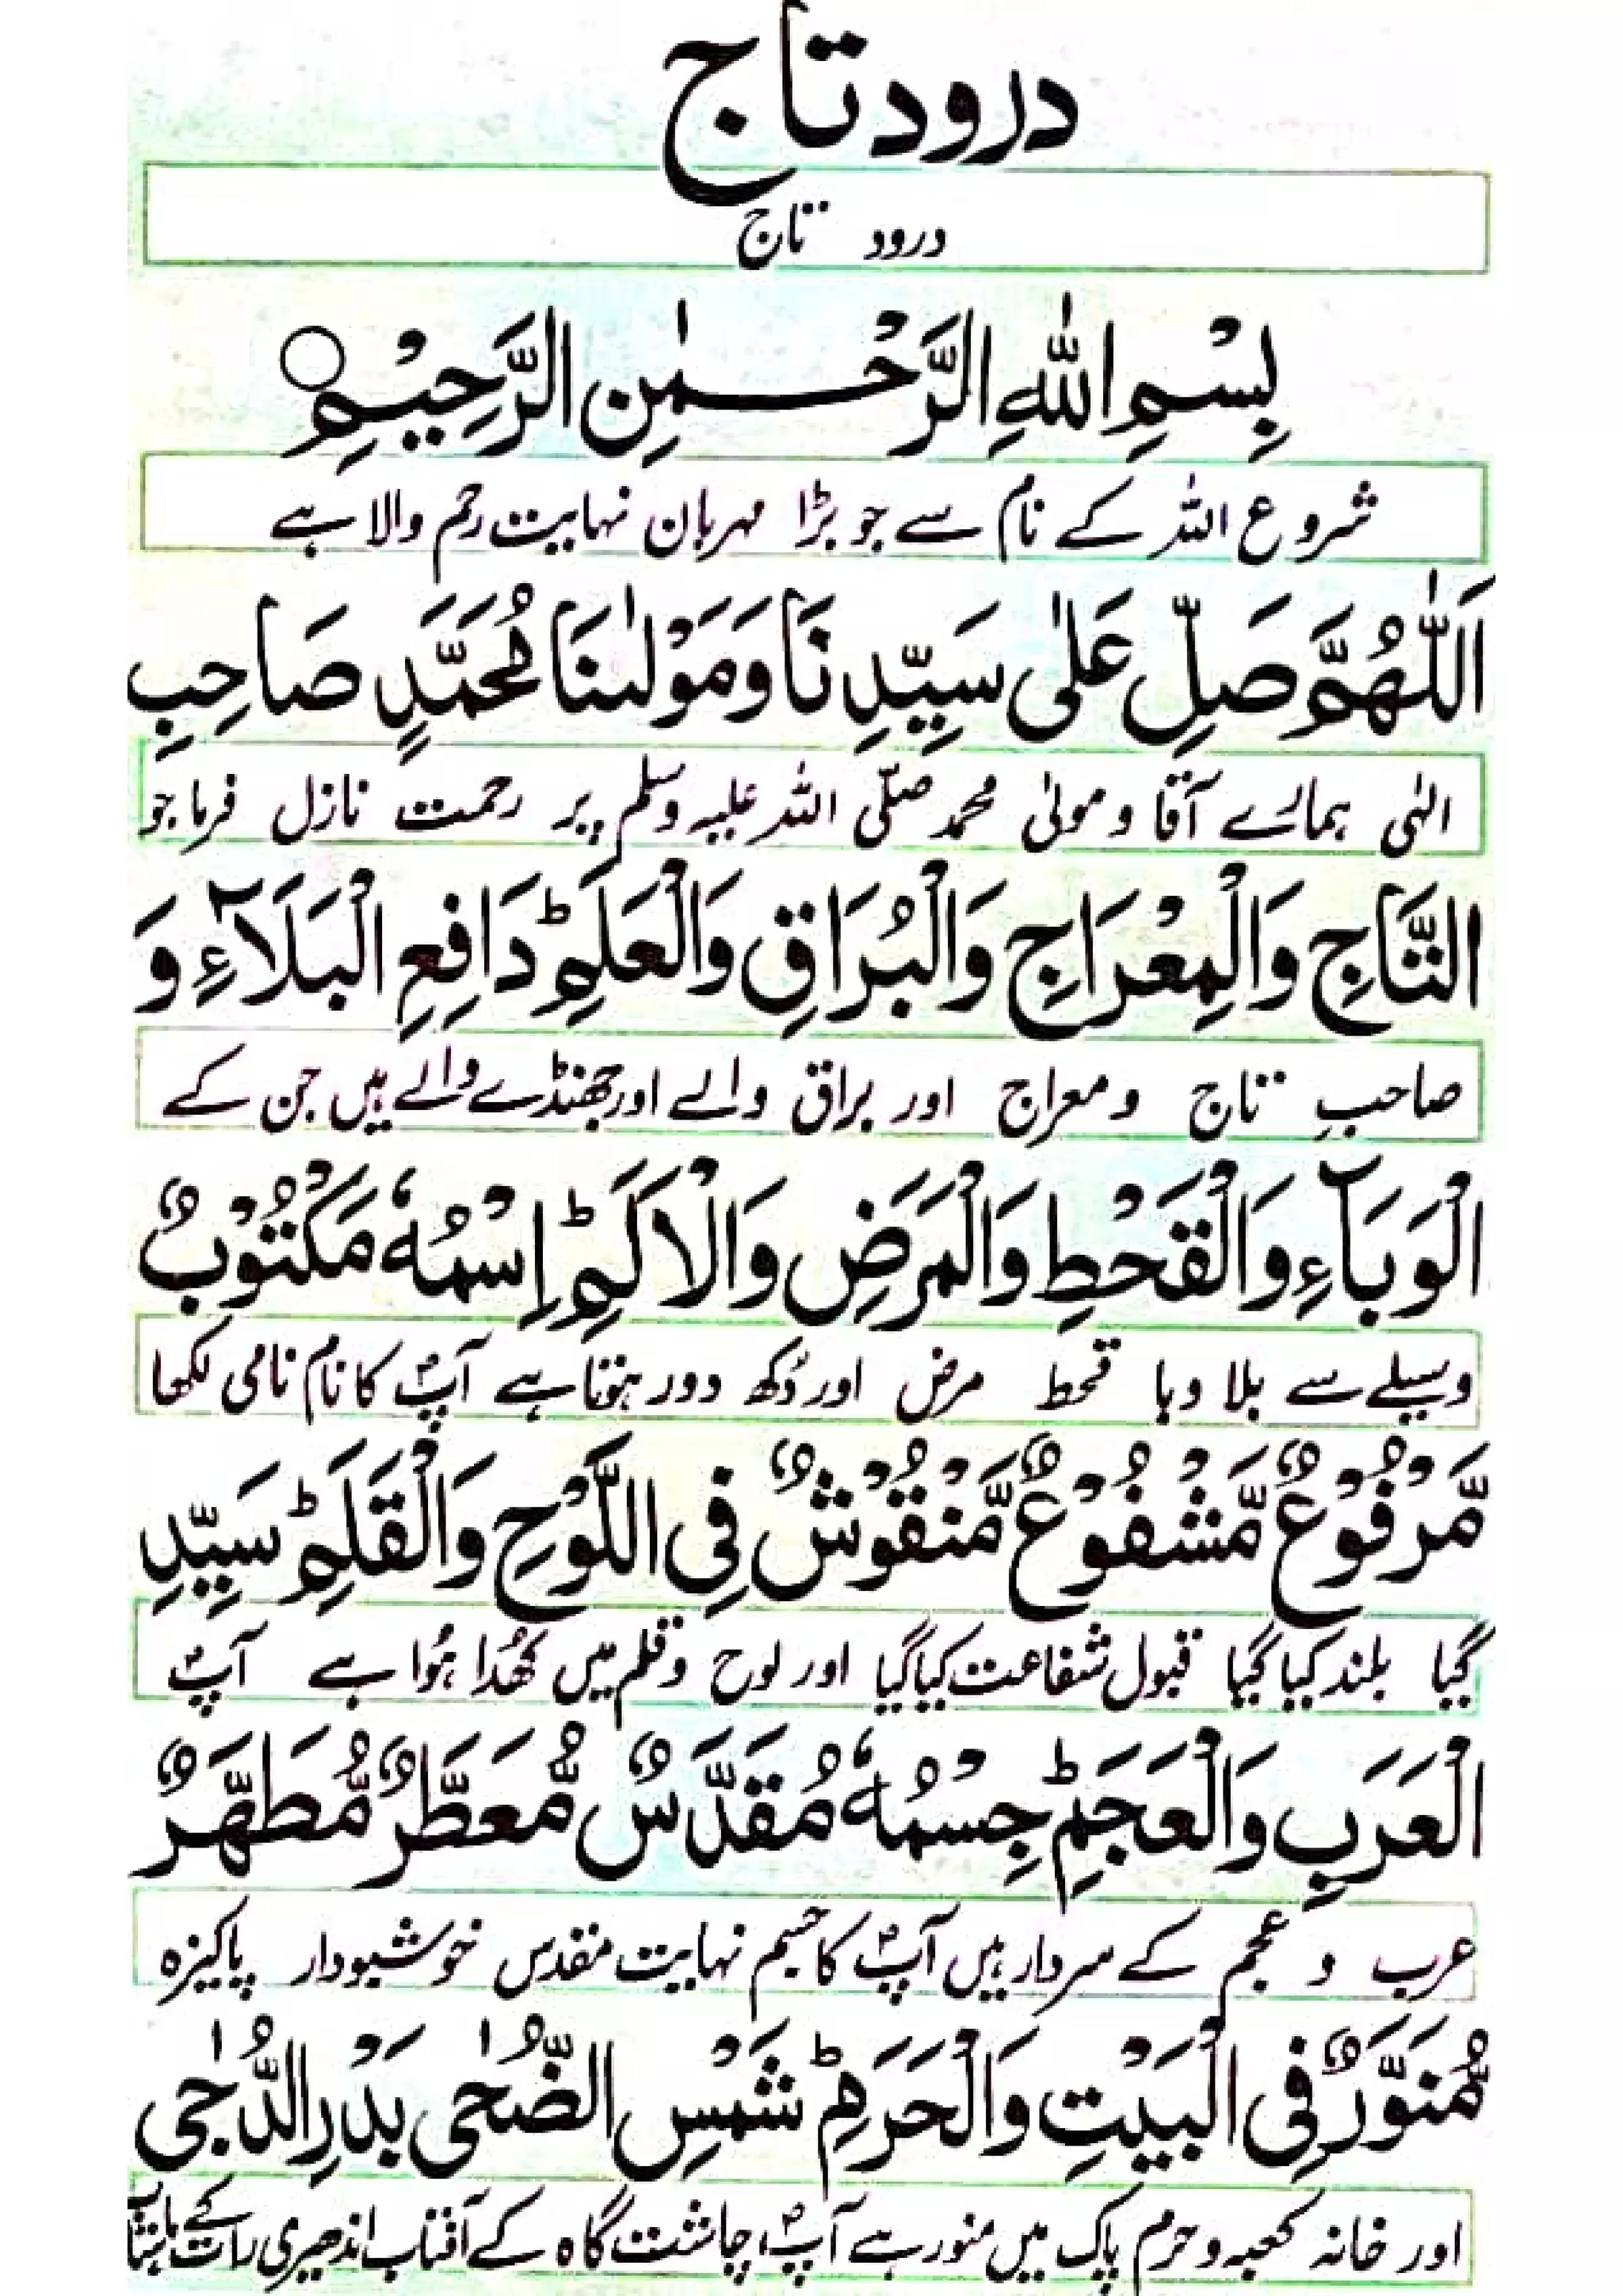 درود تاج
درود تاج
بِسْمِ اللّٰهِ الرَّحْمٰنِ الرَّحِيْمِ ○
شروع اللہ کے نام سے جو بڑا مہربان نہایت رحم والا ہے
اَللّٰهُمَّ صَلِّ عَلٰى سَيِّدِنَا وَمَوْلٰىنَا مُحَمَّدٍ صَاحِبِ
الٰہی ہمارے آقا و مولیٰ محمد صلّی اللہ علیہ وسلم پر رحمت نازل فرما جو
التَّاجِ وَالْمِعْرَاجِ وَالْبُرَاقِ وَالْعَلَمِ ؕ دَافِعِ الْبَلَآءِ وَ
صاحبِ تاج و معراج اور براق والے اور جھنڈے والے ہیں جن کے
الْوَبَآءِ وَالْقَحْطِ وَالْمَرَضِ وَالْاَلَمِ ؕ اِسْمُهٗ مَكْتُوْبٌ
وسیلے سے بلا وبا قحط مرض اور دُکھ دور ہوتا ہے آپؐ کا نام نامی لکھا
مَّرْفُوْعٌ مَّشْفُوْعٌ مَّنْقُوْشٌ فِى اللَّوْحِ وَالْقَلَمِ ؕ سَيِّدِ
گیا بلند کیا گیا قبول شفاعت کیا گیا اور لوح و قلم میں کھُدا ہُوا ہے آپؐ
الْعَرَبِ وَالْعَجَمِ ؕ جِسْمُهٗ مُقَدَّسٌ مُّعَطَّرٌ مُّطَهَّرٌ
عرب و عجم کے سردار ہیں آپؐ کا جسم نہایت مقدس خوشبودار پاکیزہ
مُّنَوَّرٌ فِى الْبَيْتِ وَالْحَرَمِ ؕ شَمْسِ الضُّحٰى بَدْرِ الدُّجٰى
اور خانہ کعبہ و حرم پاک میں منور ہے آپؐ، چاشت گاہ کے آفتاب اندھیری رات کے ماہتاب